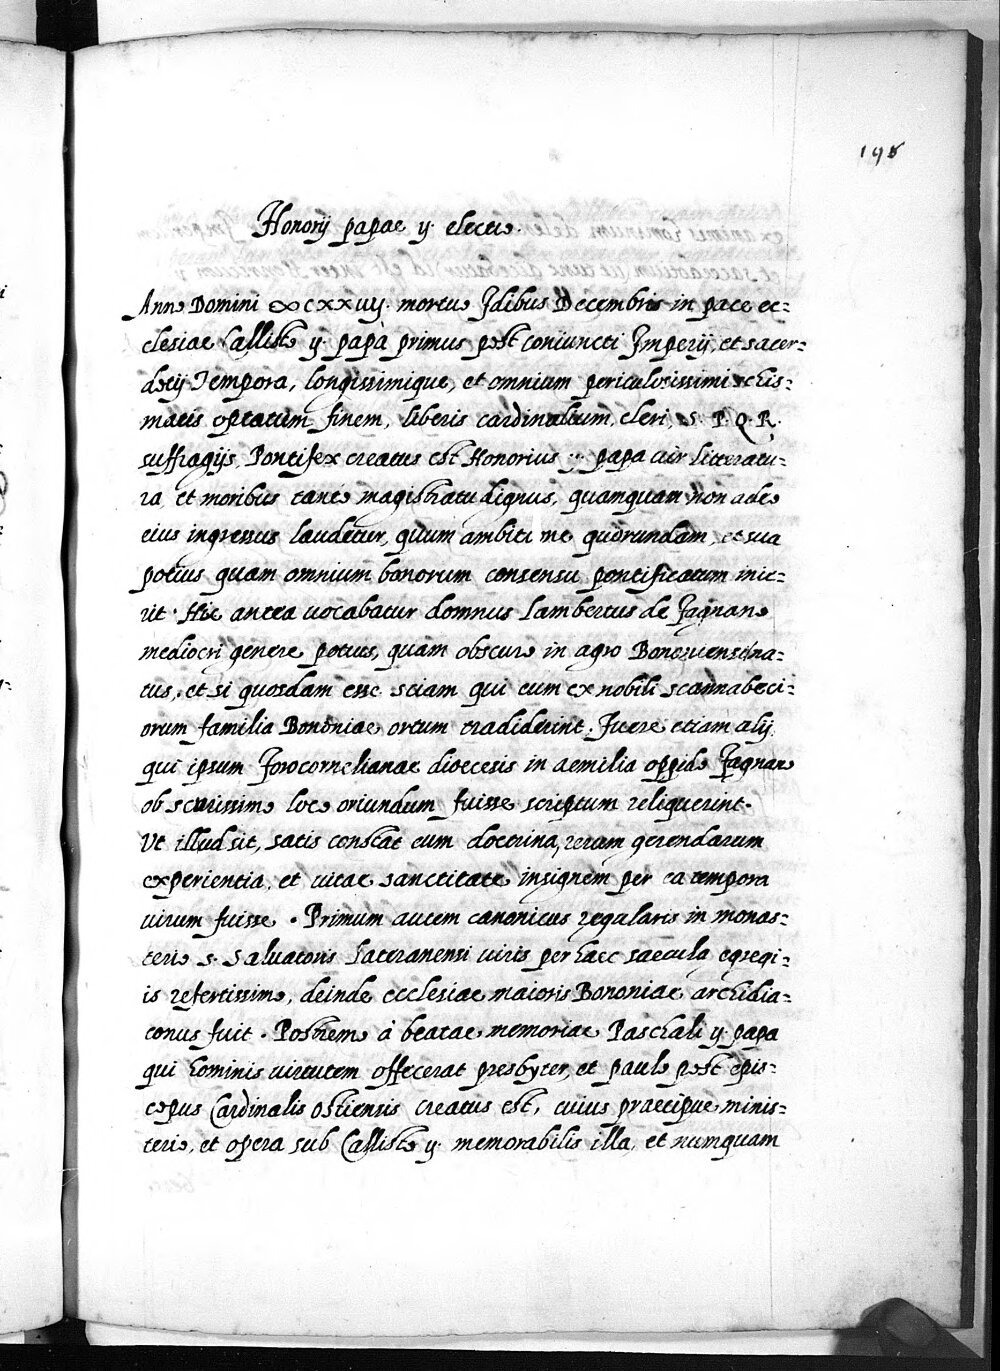 198
Honorij papae ij. electio.
Anno Domini ∞cxxiiij. mortuo Idibus Decembris in pace ec-
clesiae Callisto ij. papa primus post coniuncti Imperij, et sacer-
dotij Tempora, longissimique, et omnium periculosissimi schis-
matis optatum finem, liberis cardinalium, cleri, S. P. Q. R.
suffragijs Pontifex creatus est Honorius ij. papa uir litteratu-
ra et moribus tanto magistratu dignus, quamquam non adeo
eius ingressus laudetur, quum ambitione quorundam, et sua
potius quam omnium bonorum consensu pontificatum inie-
rit. Hic antea uocabatur domnus Lambertus de Fagnano
mediocri genere potius, quam obscuro in agro Bononiensi na-
tus, et si quosdam esse sciam qui eum ex nobili scannabeci-
orum familia Bononiae ortum tradiderint. Fuere etiam alij
qui ipsum Forocornelianae dioecesis in aemilia oppido Fagnano
obscurissimo loco oriundum fuisse scriptum reliquerint.
Ut illud sit, satis constat eum doctrina, rerum gerendarum
experientia, et uitae sanctitate insignem per ea tempora
uirum fuisse. Primum autem canonicus regularis in monas-
terio S. Saluatoris Lateranensi uiris per haec saecula egregi-
is refertissimo, deinde ecclesiae maioris Bononiae archidia-
conus fuit. Postremo à beatae memoriae Paschali ij. papa
qui hominis uirtutem effecerat presbyter, et paulo post epis-
copus Cardinalis ostiensis creatus est, cuius praecipue minis-
terio, et opera sub Callisto ij. memorabilis illa, et numquam